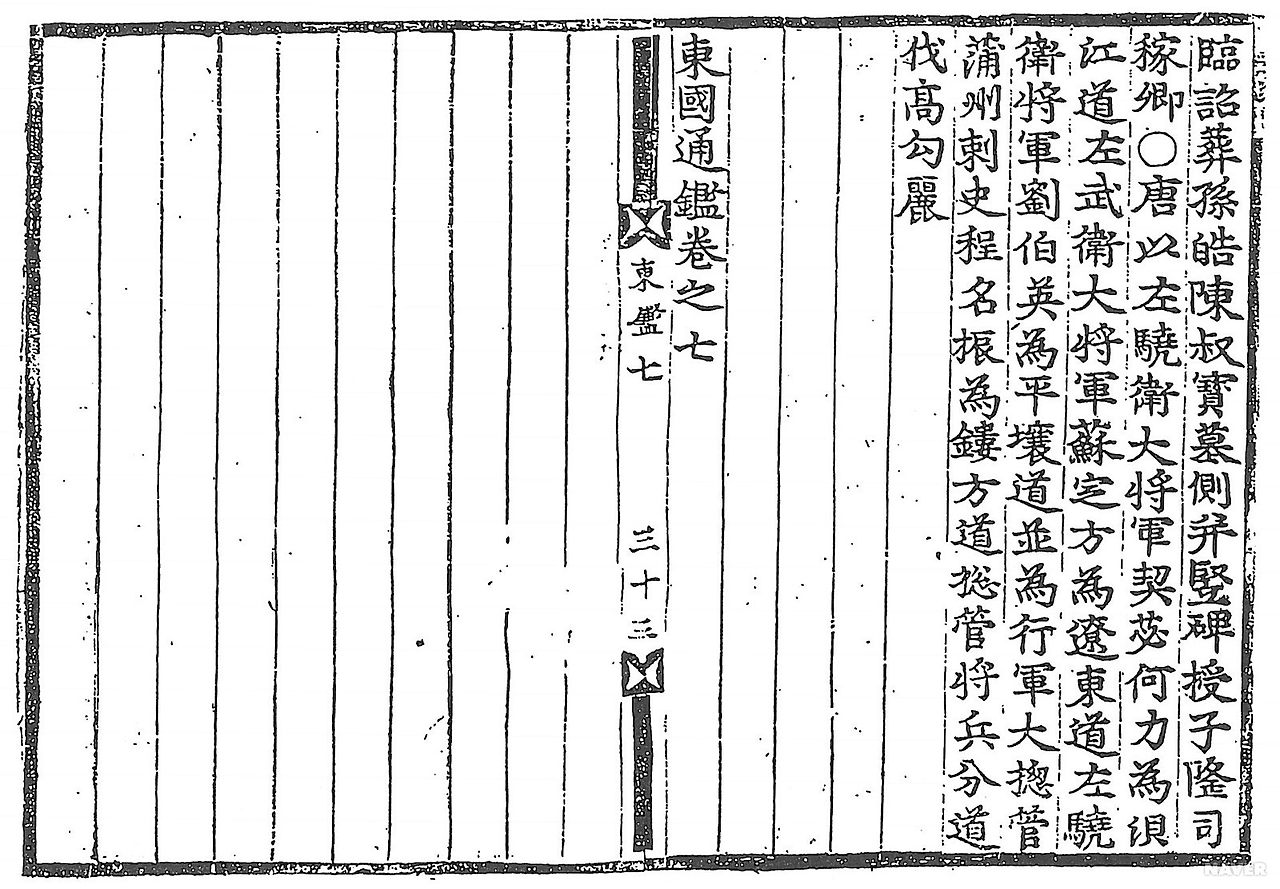 臨詔葬孫皓陳叔寶墓側并竪碑授子隆司
稼卿○唐以左驍衛大將軍契苾何力為浿
江道左武衛大將軍蘇定方為遼東道左驍
衛將軍劉伯英為平壤道並為行軍大摠管
蒲州刺史程名振為鏤方道摠管將兵分道
伐高勾麗
東國通鑑卷之七
東鑑七
三十三
NAVER